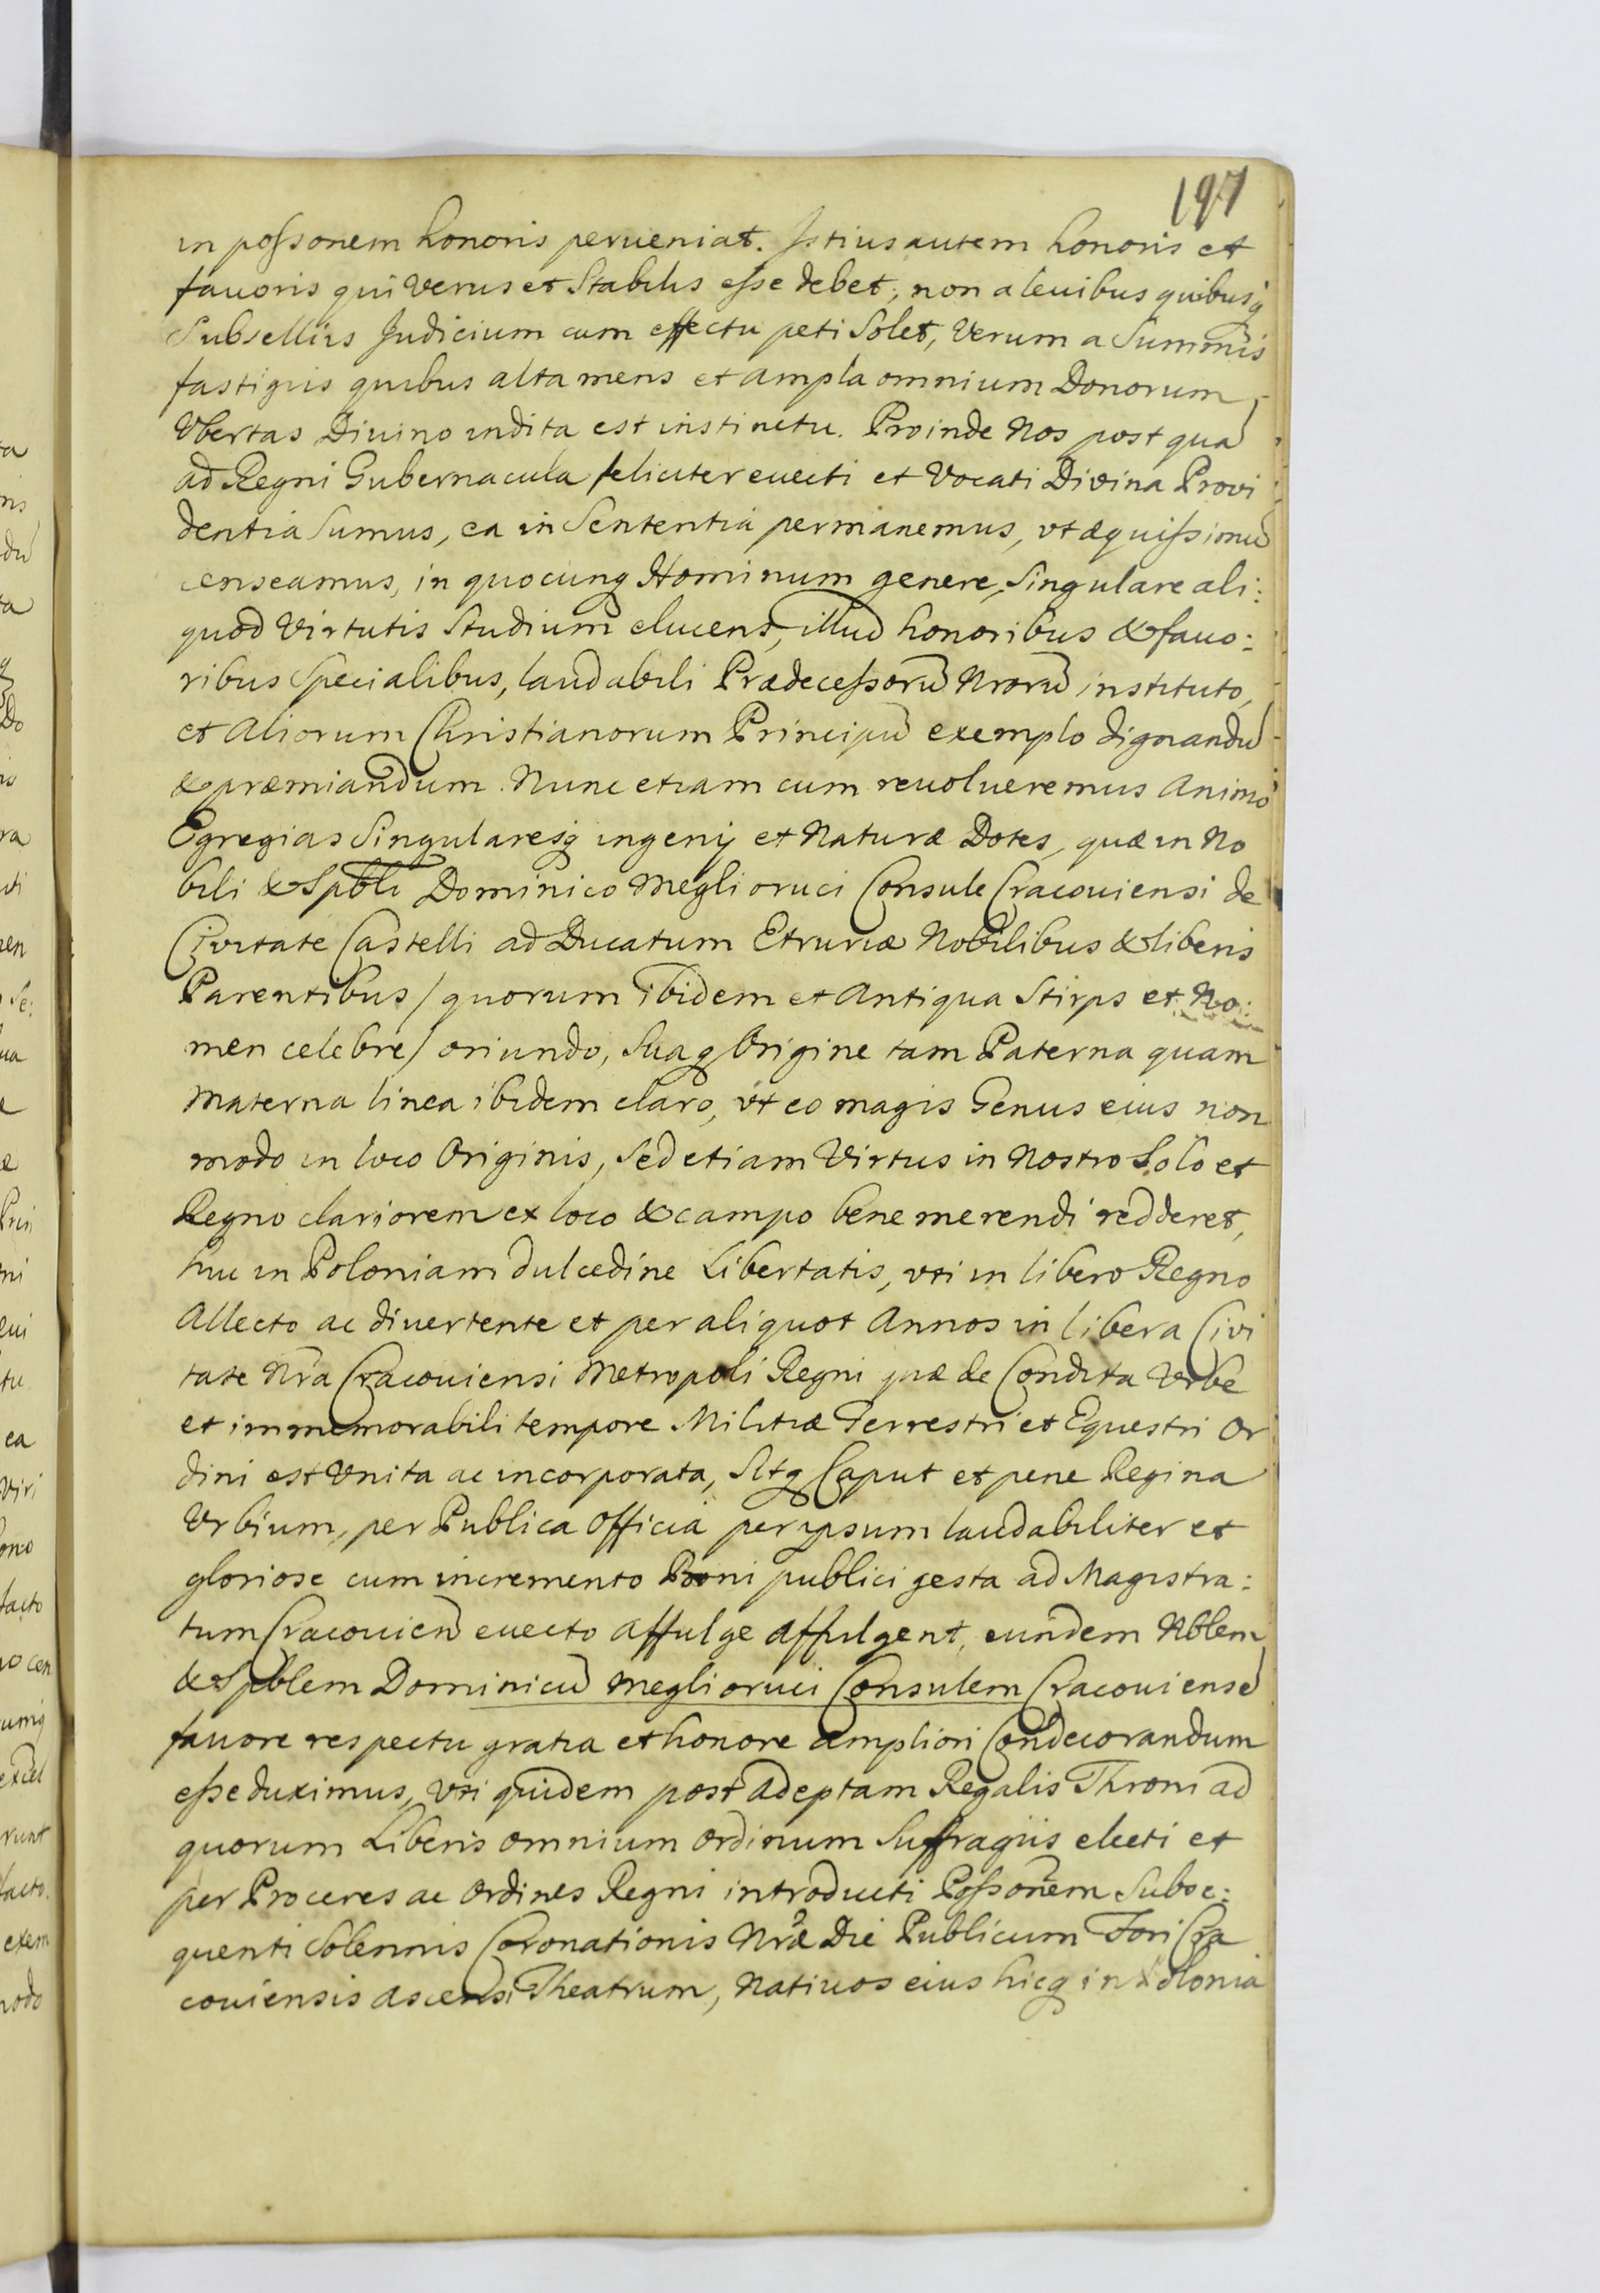 197
in possonem honoris perueniat. Istius autem honoris et
fauoris qui verus et Stabilis esse debet, non a leuibus quibusq
Subsellijs Judicium cum effectu peti Solet, Verum a Summis
fastigijs quibus alta mens et ampla omnium Donorum
Vbertas Diuino indita est instinctu. Proinde Nos post quã
ad Regni Gubernacula feliciter euecti et Vocati Divina Provi
dentia Sumus, ea in Sententia permanemus, vt æquissimũ
censeamus, in quocunq Hominum genere, Singulare ali:
quod Virtutis Studium elucens, illud honoribus & fauo:
ribus Specialibus, laudabili Prædecessorũ Nrorũ instituto,
et Aliorum Christianorum Principũ exemplo dignandũ
& præmiandum. Nunc etiam cum reuolueremus Animo
Egregias Singularesq ingenij et Naturæ Dotes, quæ in No
bili & Spbli Dominico Meglioruci Consule Cracouiensi de
Civitate Castelli ad Ducatum Etruriæ Nobilibus & liberis
Parentibus / quorum ibidem et Antiqua Stirps et No:
men celebre / oriundo, Suaq Origine tam Paterna quam
Materna linea ibidem claro, vt eo magis Genus eius non
modo in loco Originis, Sed etiam Virtus in Nostro Solo et
Regno clariorem ex loco & campo bene merendi redderet,
huc in Poloniam dulcedine Libertatis, vti in libero Regno
Allecto ac diuertente et per aliquot Annos in libera Civi
tate Nra Cracouiensi Metropoli Regni quæ de Condita Vrbe
et immemorabili tempore Militiæ Terrestri et Equestri Or
dini est Vnita ac incorporata, Sitq Caput et pene Regina
Vrbium, per Publica Officia per ipsum laudabiliter et
gloriose cum incremento Boni publici gesta ad Magistra:
tum Cracouien euecto affulge affulgent, eundem Nblem
& Spblem Dominicũ Meglioruci Consulem Cracouiensẽ
fauore respectu gratia et honore ampliori Condecorandum
esse duximus, vti quidem post adeptam Regalis Throni ad
quorum Liberis omnium ordinum Suffragijs electi et
per Proceres ac Ordines Regni introducti Possonem Subse:
quenti Solennis Coronationis Nræ Die Publicum Fori Cra
couiensis ascensi Theatrum, Natiuos eius hicq in Polonia